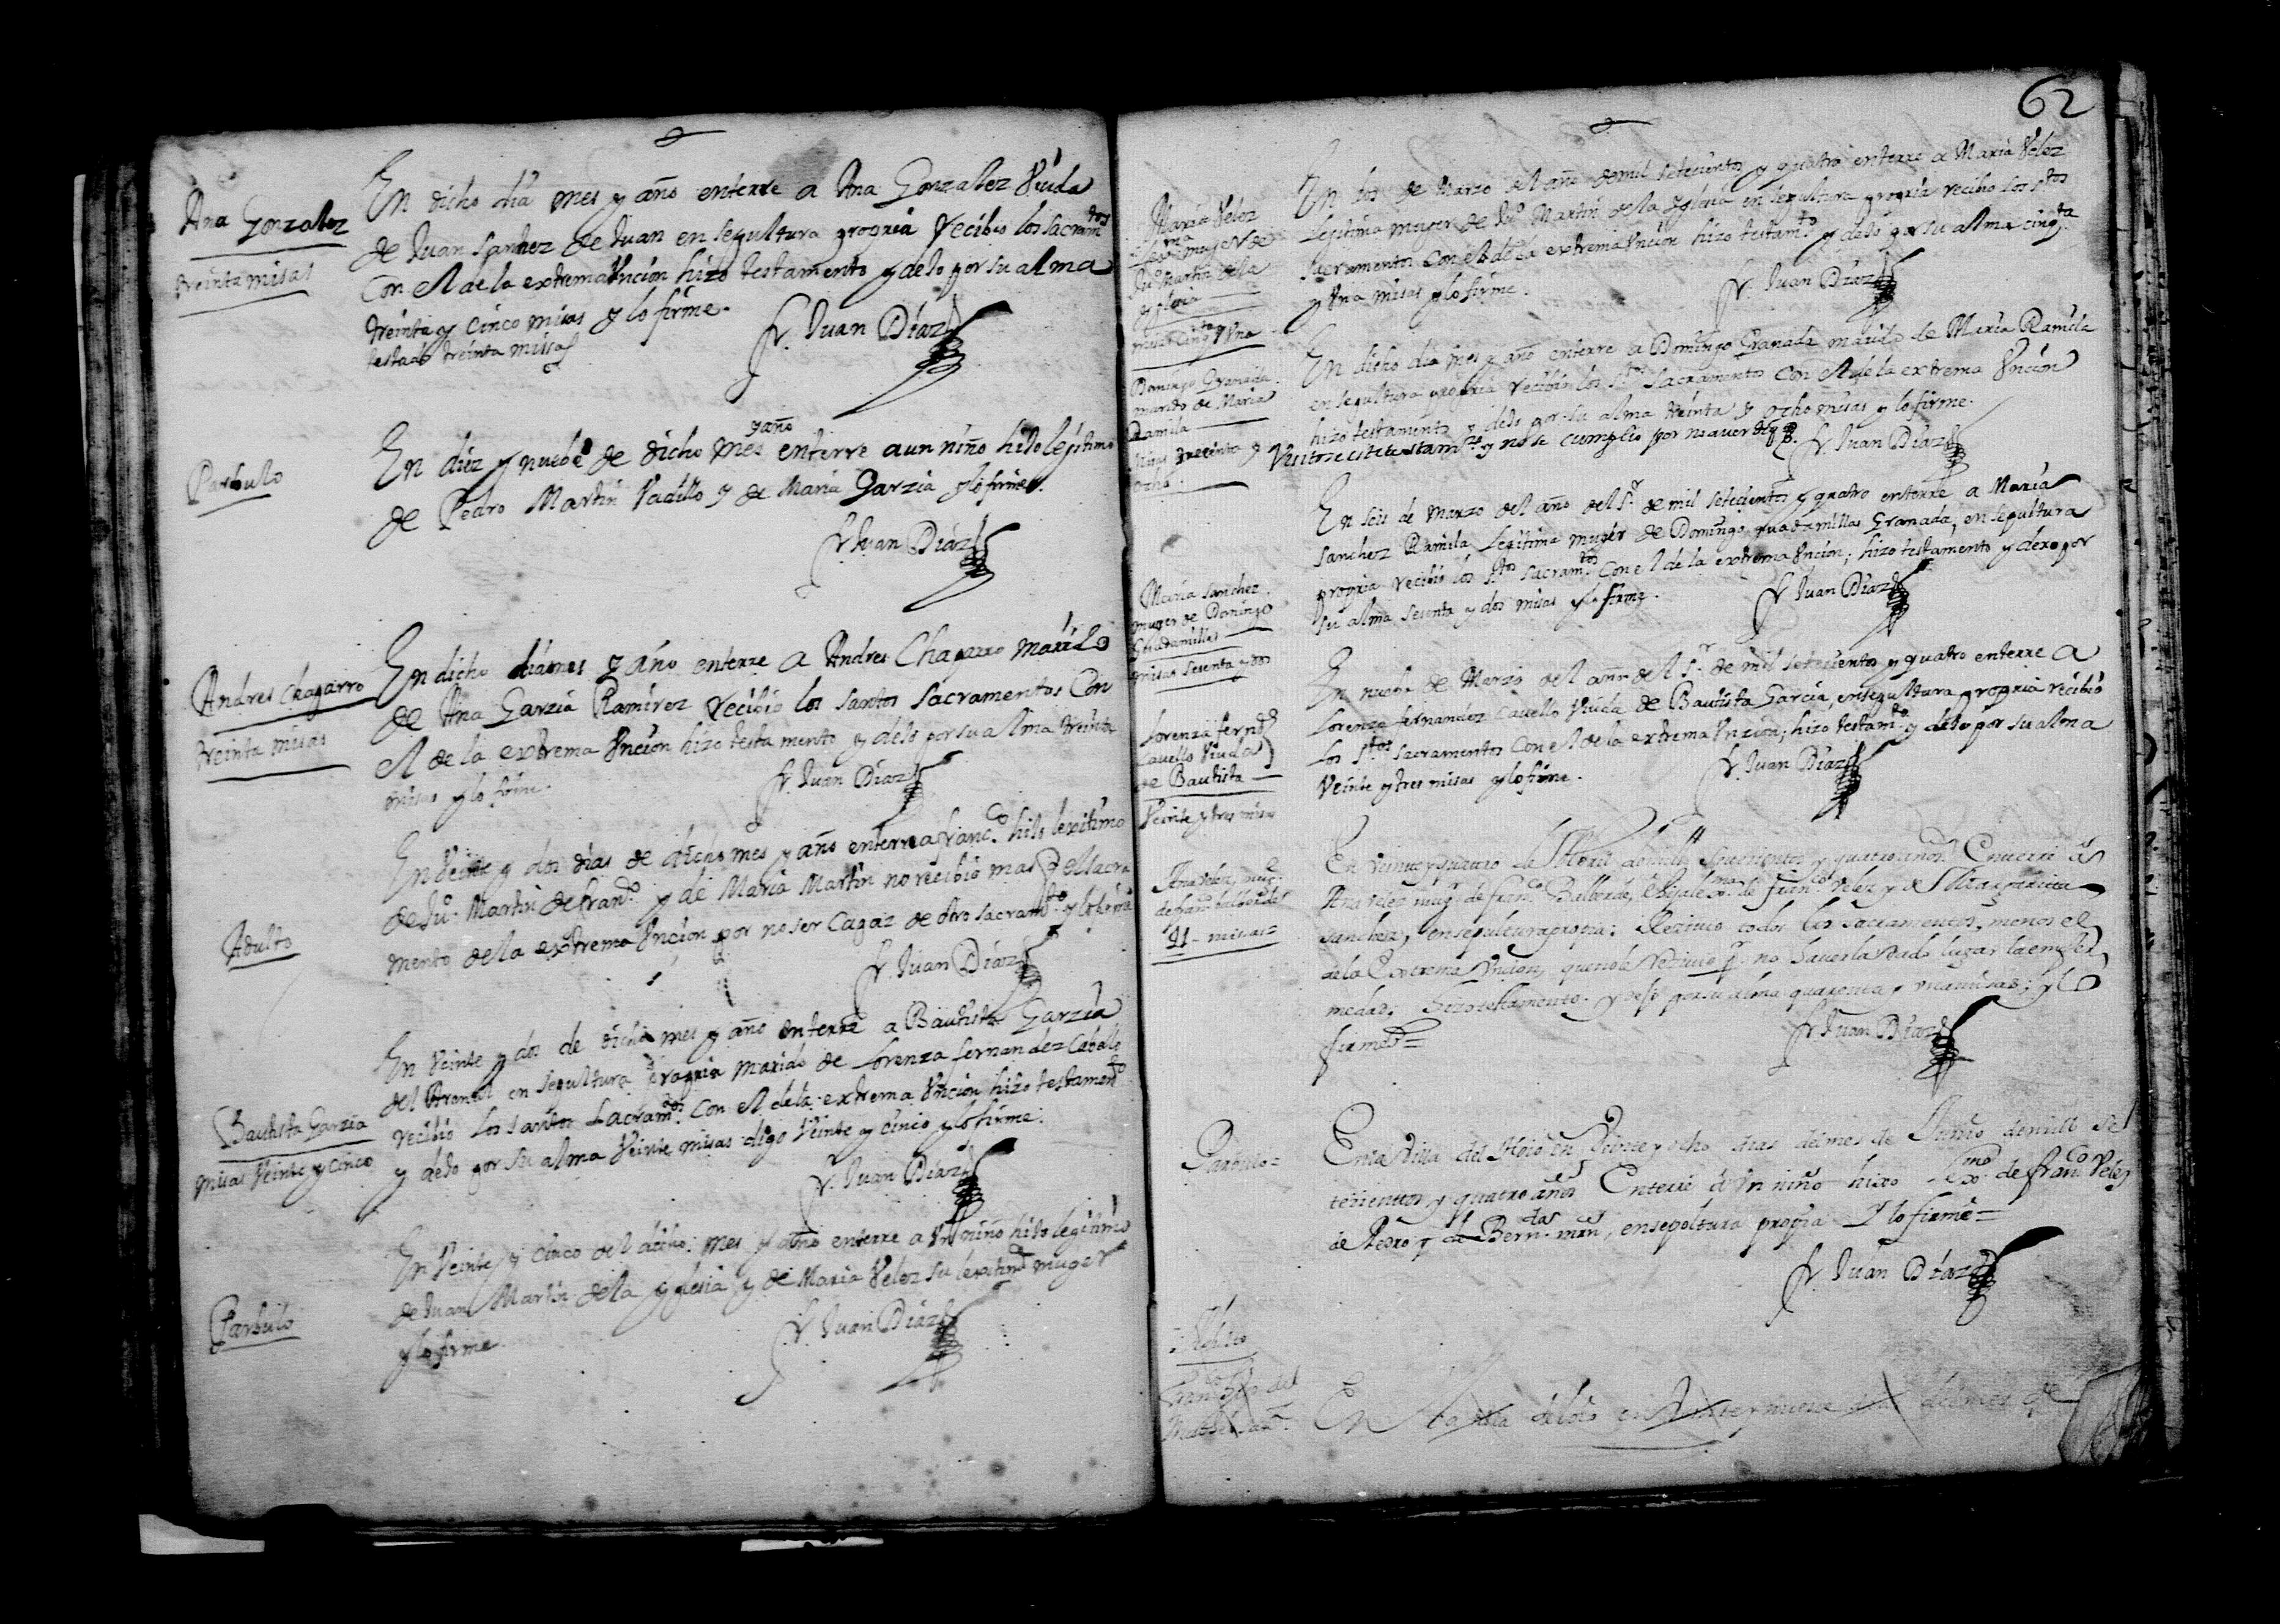 Ana Gonzalez
treinta misas
En dicho dia mes y año enterre a Ana Gonzalez Viuda
de Juan sanhez de Juan en sepultura propria Recibio los sacramtos
Con el de la extrema Vncion hizo testamento y dejo por su alma
treinta y cinco misas y lo firme.
testado treinta missas
fr. Juan Diaz
Parbulo
yaño
En diez y nuebe de dicho mes enterre a un niño hijo legitimo
de Pedro Martin Vadillo y de Maria Garzia y lo firme.
fr Juan Diaz
Andres Chaparro
treinta misas
En dicho dia mes y año enterre a Andres Chaparro marido
de Ana Garzia Ramirez recibio los santos sacramentos Con
el de la extrema Vncion hizo testamento y dejo por su alma treinta
misas y lo firme.
fr. Juan Diaz
Adulto
En Veinte y dos dias de dicho mes y año enterre a franco. hijo lexitimo
de Juo. Martin de franco. y de Maria Martin no recibio mas q el sacra
mento de la extrema Vncion por no ser Capaz de otro sacramto. y lo firme
fr. Juan Diaz
Bautista Garzia
misas Veinte y Cinco
En Veinte y dos de dicho mes y año enterre a Bautista Garzia
del Arenal en sepultura propria marido de Lorenza fernandez Caballo
recibio los santos sacramtos. Con el de la extrema Vncion hizo testamento
y dejo por su alma Veinte misas digo Veinte y cinco y lo firme.
fr. Juan Diaz
Parbulo
En Veinte y cinco del dicho mes y año enterre a Vn niño hijo legitimo
de Juan Martin de la yglesia y de Maria Velez su lexitima muger
y lo firme
fr. Juan Diaz
62
Maria Velez
muger de
Juo Martin de la
yglesia
misas cinqta y Vna
En dos de Marzo del año de mil setecientos y quatro enterre a Maria Velez
Legitima muger de Juo. Martin de la Yglesia en sepultura propria recibio los stos
sacramentos Con el de la extrema Vncion hizo testamto. y dejo por su alma cinqta
y Vna misas y lo firme.
fr. Juan Diaz
Domingo Granada
marido de Maria
Ramila
misas treinta y
ocho.
En dicho dia mes y año enterre a Domingo Granada marido de Maria Ramila
en sepultura propria recibio los stos sacramentos Con el de la extrema Vncion
hizo testamento y dejo por su alma treinta y ocho misas y lo firme.
Visitose este testamto. y no se cumplio por no aver de q
fr Juan Diaz
Maria sanchez
muger de Domingo
Guadamillas
misas sesenta y dos
En seis de Marzo del año del Sr. de mil setecientos y quatro enterre a Maria
sanchez Ramila Legitima muger de Domingo guadamillas Granada, en sepultura
propria recibio los stos sacramtos Con el de la extrema Vncion; hizo testamento y dexo por
su alma sesenta y dos misas y lo firme.
fr Juan Diaz
Lorenza fernz
Cauello Viuda
de Bautista
Veinte y tres misas
En nuebe de Marzo del año del Sr. de mil setecientos y quatro enterre a
Lorenza fernandez Cauello Viuda de Bautista Garcia, en sepultura propria recibio
los stos sacramentos Con el de la extrema Vnzion; hizo testamto. y dejo por su alma
Veinte y tres misas y lo firme.
fr. Juan Diaz
Ana Velez, mug.
de franco balberde
41 - misas
En veinte y quatro de Abril de mill y setecientos y quatro años Enterre a
Ana Velez mugr. de franco. Balberde, e hija lexma. de franco. Velez y de
sanchez, en sepultura propia: Reziuio todos los sacramentos, menos el
de la Extrema Vncion, que no le Reziuio pr. no hauerla dado lugar la enfer
medad; hizo testamento. y dejo por su alma quarenta y vna misas; y lo
firme =
fr Juan Diaz
Parbulo =
En la Villa del Hoio en Veinte y ocho dias del mes de Junio de mill se
tecientos y quatro años Enterre a Vn niño hixo Lexmo. de franco Velez
de Pedro y de Bernar. mrn, en sepoltura propia Y lo firme =
fr. Juan Diaz
Adulto
En la Villa del oio en Veinte y nueve dias del mes de